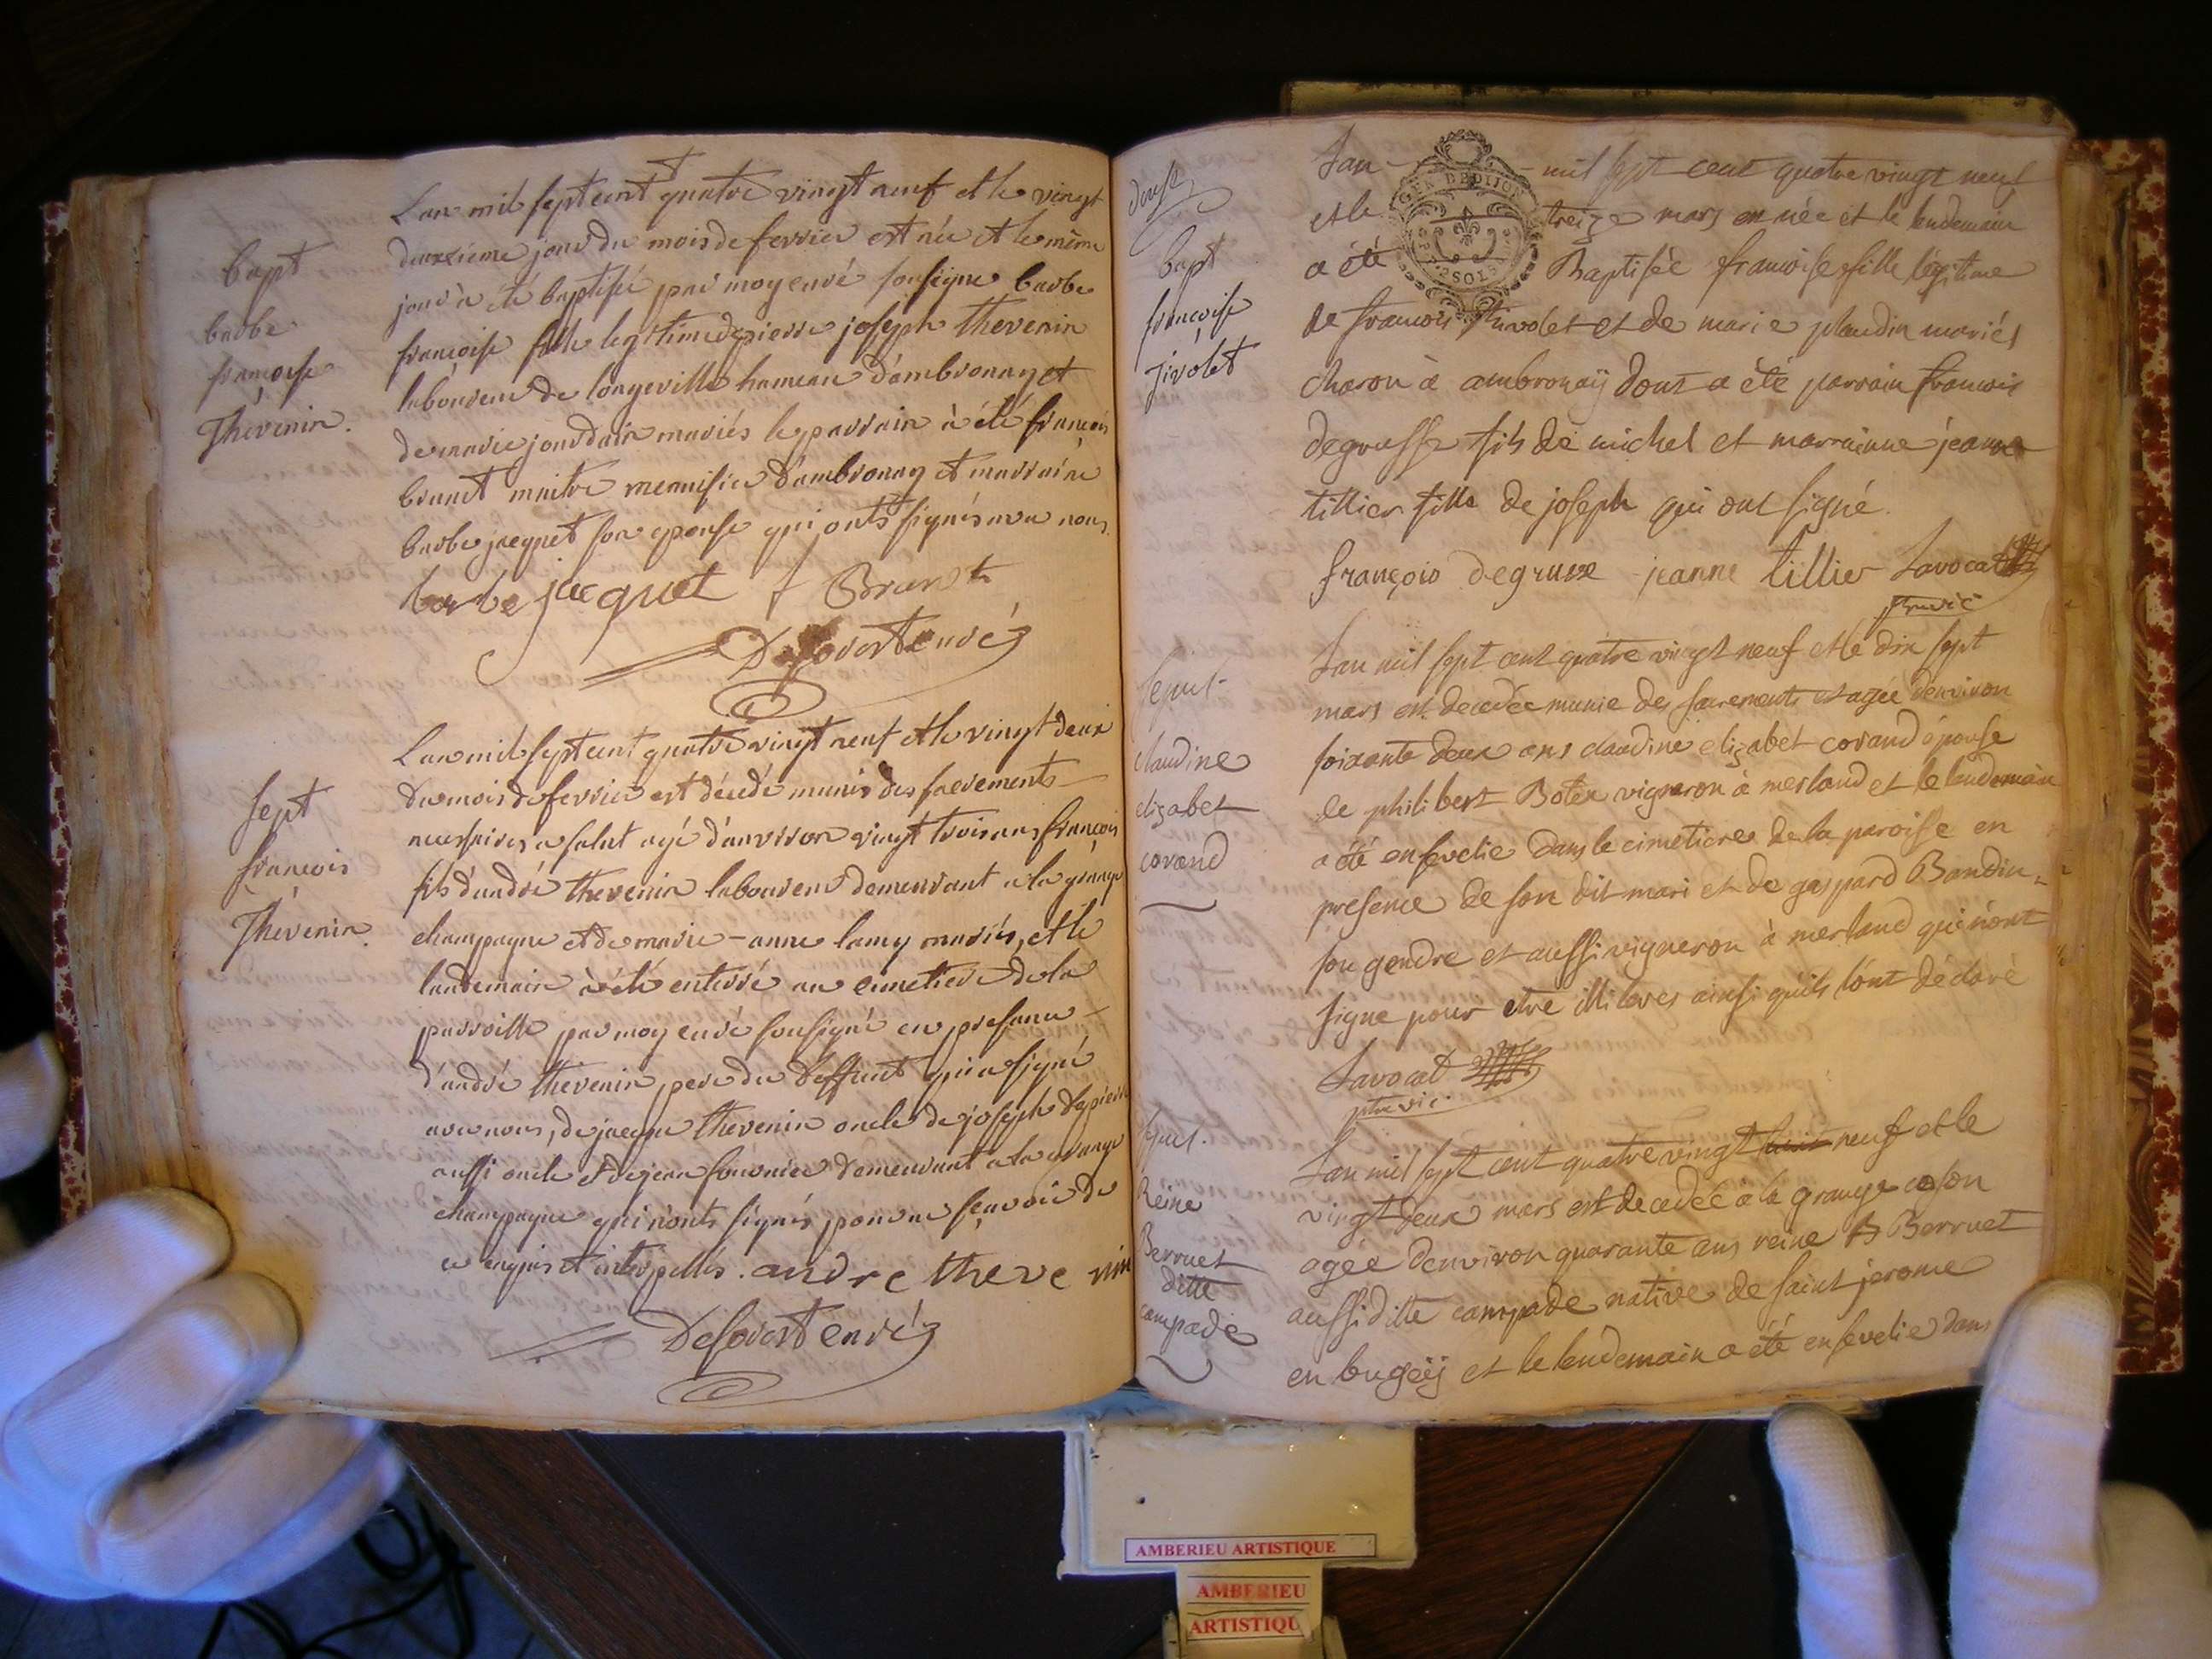 bapt
barbe
francoise
Thévenin.
L'an mil sept cent quatre vingt neuf et le vingt
deuxieme jour du mois de fevrier est née et le même
jour à été baptisée par moy curé soussigné barbe
françoise fille legitime de pierre joseph thevenin
laboureur de longeville hameau d'ambronay et
de marie jourdain mariés le parrain à été françois
brunet maitre menuisier d'ambronay et marraine
barbe jacquet son epouse qui onts signés avec nous.
barbe jacquet f Brunet
curé
sept
francois
Thévenin.
L'an mil sept cent quatre vingt neuf et le vingt deux
du mois de fevrier est décédé munis des sacrements
necessaires a salut agé d'anviron vingt trois ans françois
fils d'andré thevenin laboureur demeurant a la grange
champagne et de marie-anne lamy mariés, et le
landemain à été enterré au cimetiere de la
parroisse par moy curé soussigné en presance
d'andré thevenin pere du deffunt qui a signé
avec nous, de jacque thevenin oncle de joseph de pierre
aussi oncle et de jean fournier demeurant a la grange
champagne qui n'onts signés pour ne sçavoir de
ce enquis et interpellés. andre theve nin
curé
douse
bapt
francoise
jivolet
L'an mil sept cent quatre vingt neuf
et le treize mars en née et le lendemain
a été Baptisée francoise fille légitime
de francois jivolet et de marie plaudin mariés
charon à ambronaÿ dont a été parrain francois
degrusse fils de michel et marrainne jeanne
tillier fille de joseph qui ont signé.
françois degrusse jeanne tillier Lavocat
ptre vic
GEN. DE DIJON
2 SOLS
sepul.
claudine
elizabet
corand
L'an mil sept cent quatre vingt neuf et le dix sept
mars est decedée munie des sacrements et agée d'environ
soixante deux ans claudine elizabet corand épouse
de philibert Botex vigneron à merland et le lendemain
a été ensevelie dans le cimetiere de la paroisse en
presence de son dit mari et de gaspard Bandin
son gendre et aussi vigneron à merland qui n'ont
signe pour etre illiteres ainsi qu'ils l'ont déclaré
Lavocat
ptre vic.
sepul.
Reine
Berruet
ditte
campade
L'an mil sept cent quatre vingt huit neuf et le
vingt deux mars est decedée à la grange
agée d'environ quarante ans reine B Berruet
aussi ditte campade native de saint jerome
en bugeÿ et le lendemain a été ensevelie dans
AMBERIEU ARTISTIQUE
AMBERIEU
ARTISTIQU